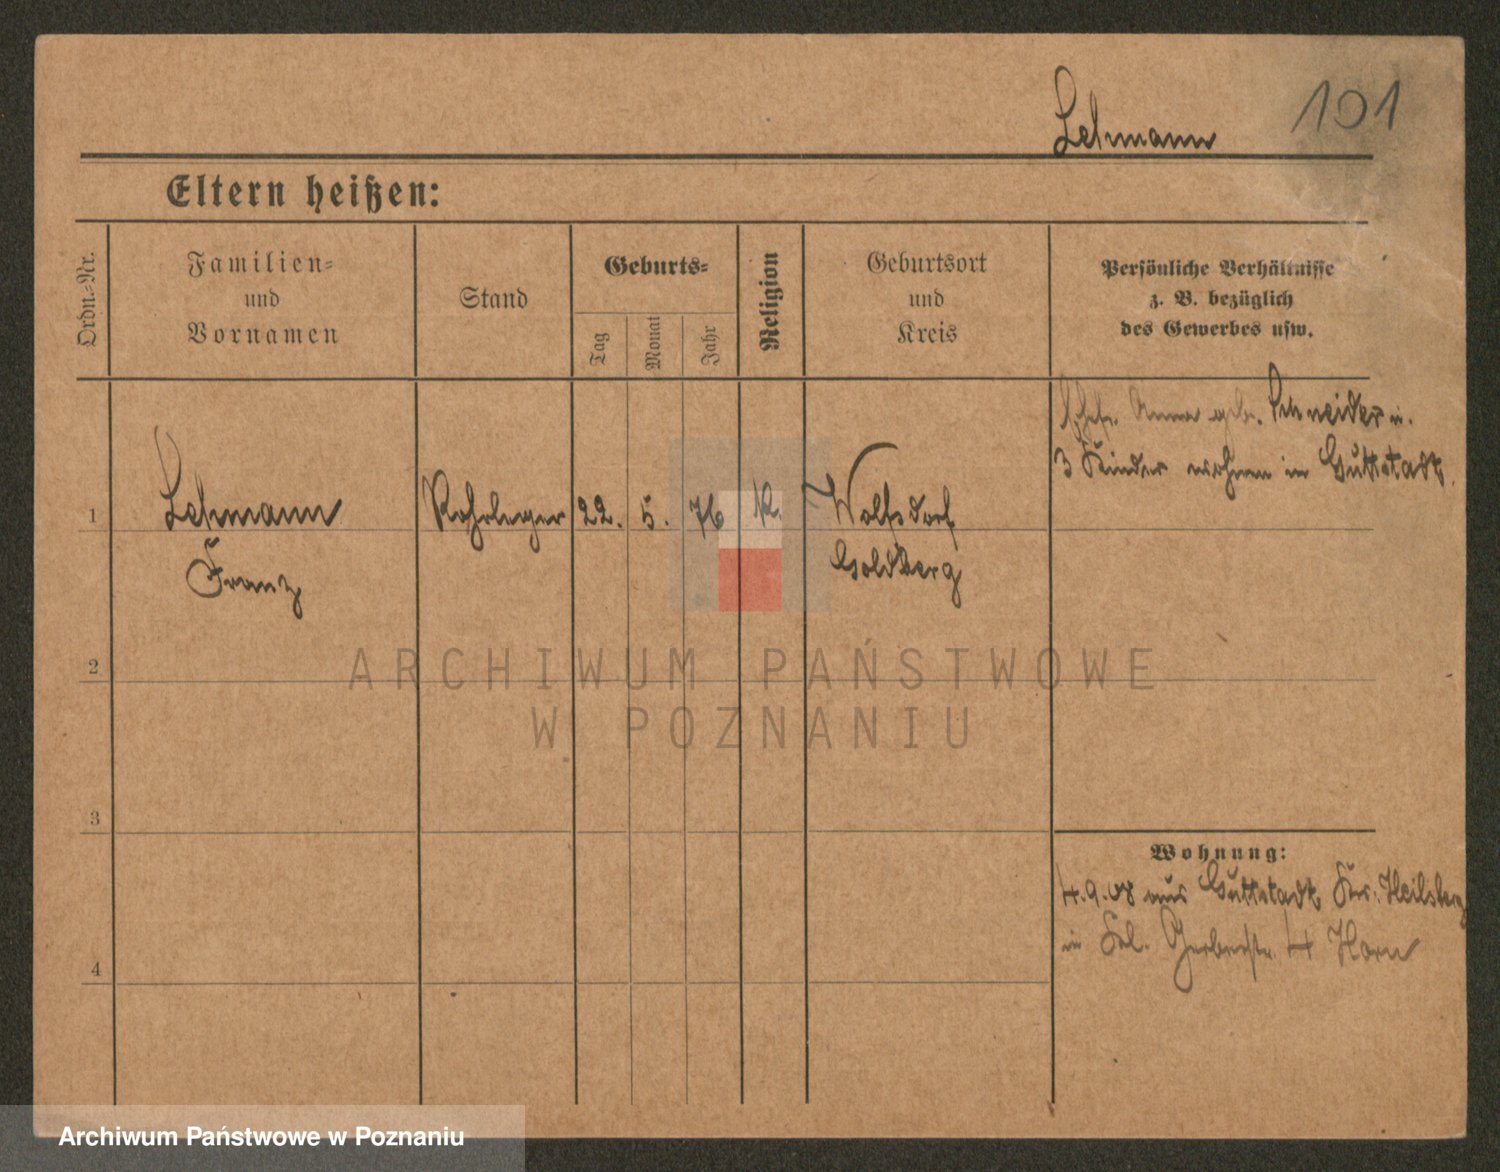 Lehmann
101
Eltern heißen:
Ordn.-Nr.
Familien-
und
Vornamen
Stand
Geburts-
Tag
Monat
Jahr
Religion
Geburtsort
und
Kreis
Persönliche Verhältnisse
z. B. bezüglich
des Gewerbes usw.
1
Lehmann
Franz
Rohrleger
22.
5.
76
K.
Wolfsdorf
Goldberg
Ehefr. Anna geb. Schneider u.
3 Kinder wohnen in Guttstadt.
2
3
4
Wohnung:
4.9.08 aus Guttstadt Krs. Heilsberg
in Gerberstr. 4 Horn
ARCHIWUM PAŃSTWOWE
W POZNANIU
Archiwum Państwowe w Poznaniu